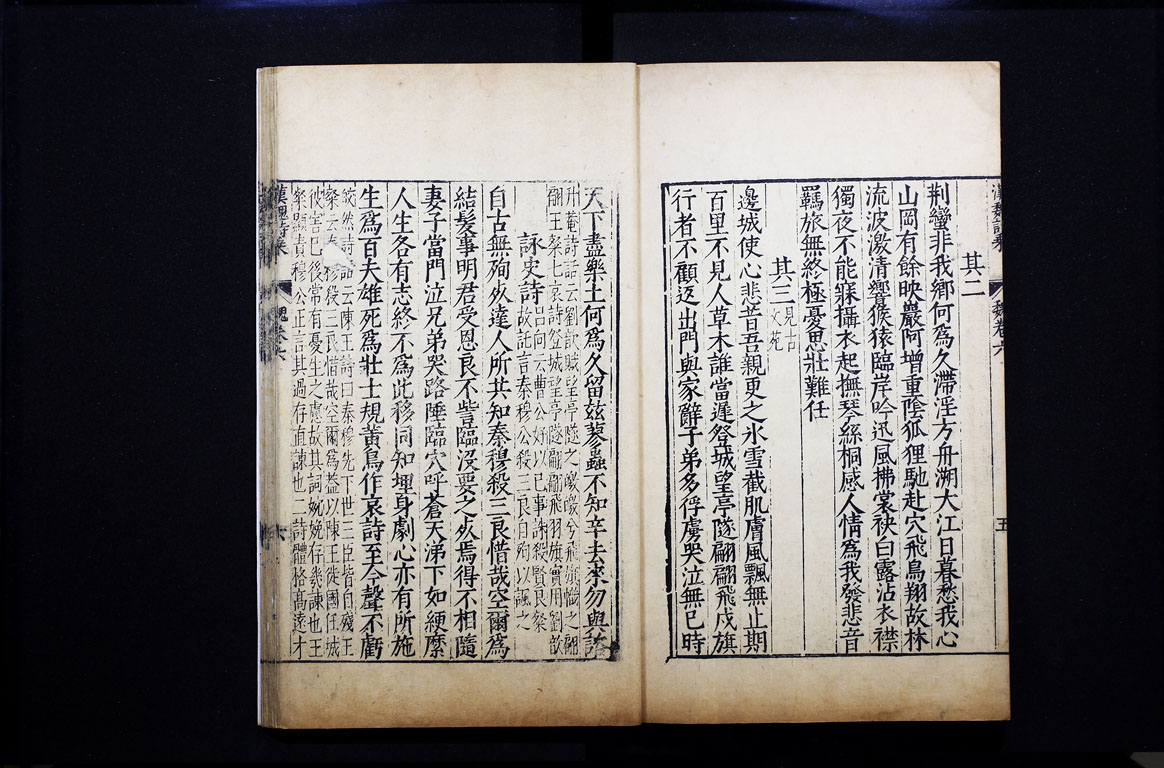 漢魏詩乘
魏卷六
五
其二
荆蠻非我鄉何爲久滯淫方舟溯大江日暮愁我心
山岡有餘映巖阿增重陰狐狸馳赴穴飛鳥翔故林
流波激清響猴猿臨岸吟迅風拂裳袂白露沾衣襟
獨夜不能寐攝衣起撫琴絲桐感人情爲我發悲音
羈旅無終極憂思壯難任
其三見古文苑
邊城使心悲昔吾親更之氷雪截肌膚風飄無止期
百里不見人草木誰當遲登城望亭隧翩翩飛戍旗
行者不顧返出門與家辭子弟多俘虜哭泣無已時
天下盡樂土何爲久留兹蓼蟲不知辛去來勿與諮
升菴詩話云劉歆賦望亭隧之皦皦兮飛旗幟之翩
翩王粲七哀詩登城望亭隧翩翩飛羽旗實用劉歆
詠史詩吕向云曹公好以已事誅殺賢良粲
故託言秦穆公殺三良自殉以諷之
自古無殉死達人所共知秦穆殺三良惜哉空爾爲
結髮事明君受恩良不訾臨沒要之死焉得不相隨
妻子當門泣兄弟哭路垂臨穴呼蒼天涕下如綆縻
人生各有志終不爲此移同知埋身劇心亦有所施
生爲百夫雄死爲壯士規黄鳥作哀詩至今聲不虧
皎然詩話云陳王詩曰秦穆先下世三臣皆自殘王
粲云秦穆殺三良惜哉空爾爲蓋以陳王徙國任城
被害已後常有憂生之慮故其詞婉娩存幾諫也王
粲顯責穆公正言其過存直諫也二詩體格高逺才
漢魏詩乘
魏卷六
六